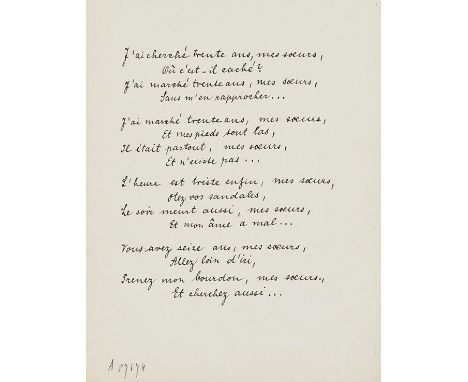 J'ai cherché trente ans, mes sœurs,
Où c'est-il caché?
J'ai marché trente ans, mes sœurs,
Sans m'en rapprocher...
J'ai marché trente ans, mes sœurs,
Et mes pieds sont las,
Il était partout, mes sœurs,
Et n'existe pas...
L'heure est triste enfin, mes sœurs,
Otez vos sandales,
Le soir meurt aussi, mes sœurs,
Et mon âme a mal...
Vous avez seize ans, mes sœurs,
Allez loin d'ici,
Prenez mon bourdon, mes sœurs,
Et cherchez aussi...